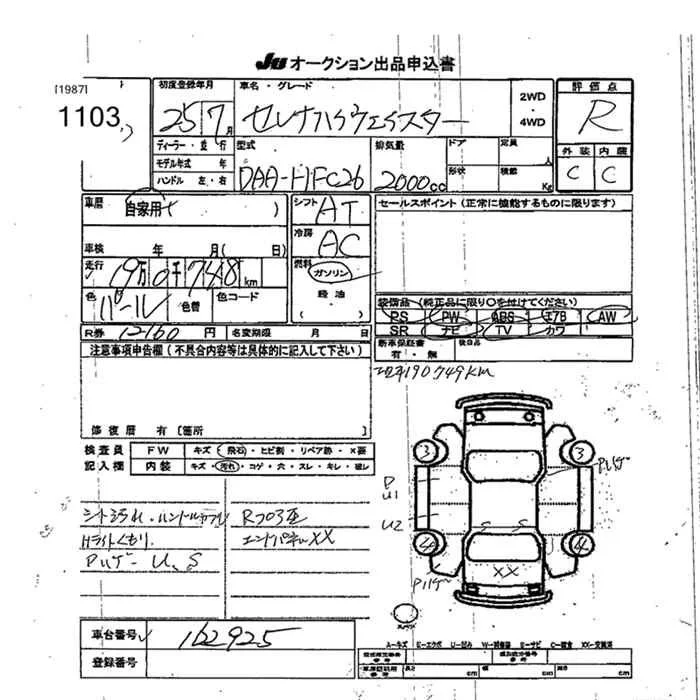 Ju オークション出品申込書
[1987]
1103
初度登録年月 25 7月
車名・グレード セレナハイウェイスター
2WD・4WD
評価点 R
外装 C 内装 C
ディーラー・並行
モデル年式 年
ハンドル 左・右
型式 DAA-HFC26
排気量 2000cc
ドア
形状
定員 人
積載 Kg
車歴 自家用
車検 年 月( 日)
走行 19万0千748km
色 パール 色替 色コード
シフト AT
冷房 AC
燃料 ガソリン
軽油
( )
セールスポイント(正常に機能するものに限ります)
装備品(純正品に限り○を付けてください)
PS PW ABS エアB AW
SR ナビ TV カワ
新車保証書 有・無
後日品
R券 12160円 名変期限 月 日
190749KM
注意事項申告欄(不具合内容等は具体的に記入して下さい)
修復歴 有[箇所
検査員記入欄
FW キズ・飛石・ヒビ割・リペア跡・×要
内装 キズ・汚れ・コゲ・穴・スレ・キレ・破レ
Hライトくもり
U、S
エンドパネルXX
3 3
U1
U2
S S
4 4
XX
A-キズ E-エクボ U-凹み W-補修跡 S-サビ C-腐食 XX-交換済
車台番号 162925
登録番号
長さ cm 幅 cm 高さ cm